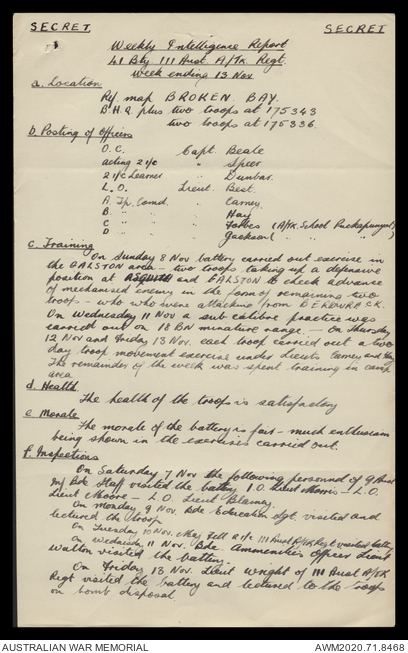 SECRET. SECRET
Weekly Intelligence Report
41 Bty 111 Aust. A/Tk. Regt.
week ending 13 Nov
a. Location
Ref. map BROKEN BAY.
B.H.Q. plus two troops at 175343
two troops at 175336.
b. Posting of Officers
O.C. Capt. Beale
acting 2i/c " Speer
2i/c Learner " Dunbar.
L.O. Lieut. Best.
A. Tp. Comd. " Carney.
B. " " " Hay
C " " " Forbes (A/Tk. School Puckapunyal)
D " " " Jackson ( " "
c. Training
On Sunday 8 Nov battery carried out exercise in
the GALSTON area - two troops taking up a defensive
position at ASQUITH and GALSTON to check advance
of mechanised enemy in the form of remaining two
troops - who were attacking from
On Wednesday 11 Nov a sub calibre practice was
carried out on 18 BN minature range. - On Thursday
12 Nov and Friday 13 Nov. each troop carried out a two
day troop movement exercise under Lieuts Carney and Hay
The remainder of the week was spent training in camp
area
d. Health
The health of the troops is satisfactory
e. Morale
The morale of the battery is fair - much enthusiasm
being shown in the exercises carried out.
f. Inspections
On Saturday 7 Nov the following personnel of 9 Aust
Inf Bde Staff visited the battery I.O. Lieut Morris - L.O.
Lieut Moore - L.O. Lieut Blamey.
On monday 9 Nov. Bde Education Sgt. visited and
lectured the troop
On Tuesday 10 Nov. May 2i/c 111 Aust A/Tk Regt visited battery
On wednesday 11 Nov. Bde. Ammunition Officer Lieut
Walton visited the battery.
On Friday 13 Nov. Lieut Wright of 111 Aust A/Tk
Regt visited the battery and lectured to the troops
on bomb disposal
AUSTRALIAN WAR MEMORIAL AWM2020.71.8468